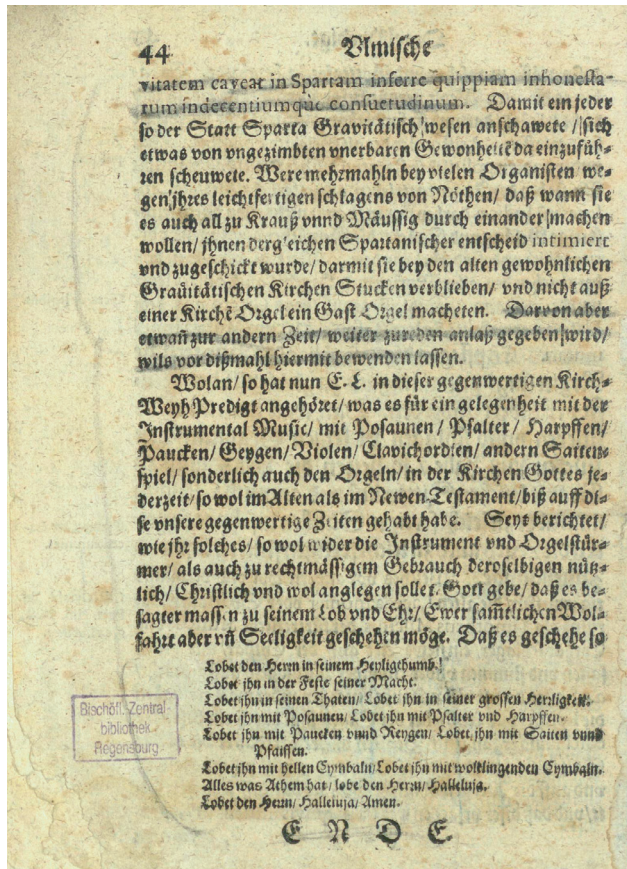 44 Vlmische
vitatem caveat in Spartam inferre quippiam inhonesta-
rum indecentiumque consuetudinum. Damit ein jeder
so der Statt Sparta Gravitätisch wesen anschawete / sich
etwas von vngezimbten vnerbaren Gewonheitē da einzufüh-
ren scheuwete. Were mehrmahln bey vielen Organisten we-
gen jhres leichtfertigen schlagens von Nöthen / daß wann sie
es auch all zu Krauß vnnd Mäussig durch einander machen
wollen / jhnen dergleichen Spartanischer entscheid intimiert
vnd zugeschickt wurde / darmit sie bey den alten gewohnlichen
Gravitätischen Kirchen Stucken verblieben / vnd nicht auß
einer Kirchē Orgel ein Gast Orgel macheten. Darvon aber
etwañ zur andern Zeit / weiter zureden anlaß gegeben wird /
wils vor dißmahl hiermit bewenden lassen.
Wolan / so hat nun E. L. in dieser gegenwertigen Kirch-
Weyh Predigt angehöret / was es für ein gelegenheit mit der
Instrumental Music / mit Posaunen / Psalter / Harpffen /
Paucken / Geygen / Violen / Clavichordien / andern Saiten-
spiel / sonderlich auch den Orgeln / in der Kirchen Gottes je-
derzeit / so wol im Alten als im Newen Testament / biß auff di-
se vnsere gegenwertige Zeiten gehabt habe. Seyt berichtet /
wie jhr solches / so wol wider die Instrument vnd Orgelstür-
mer / als auch zu rechtmässigem Gebrauch deroselbigen nütz-
lich / Christlich vnd wol anglegen sollet. Gott gebe / daß es be-
sagter massen zu seinem Lob vnd Ehr / Ewer sam̃tlichen Wol-
fahrt aber vñ Seeligkeit geschehen möge. Daß es geschehe so
Lobet den Herrn in seinem Heyligthumb /
Lobet jhn in der Feste seiner Macht.
Lobet jhn in seinen Thaten / Lobet jhn in seiner grossen Herrligkeit.
Lobet jhn mit Posaunen / Lobet jhn mit Psalter vnd Harpffen.
Lobet jhn mit Paucken vnnd Reygen / Lobet jhn mit Saiten vnnd
Pfaiffen.
Lobet jhn mit hellen Cymbaln / Lobet jhn mit wolklingenden Cymbaln.
Alles was Athem hat / lobe den Herrn / Halleluja.
Lobet den Herrn / Halleluja / Amen.
E N D E.
Bischöfl. Zentral-
bibliothek
Regensburg